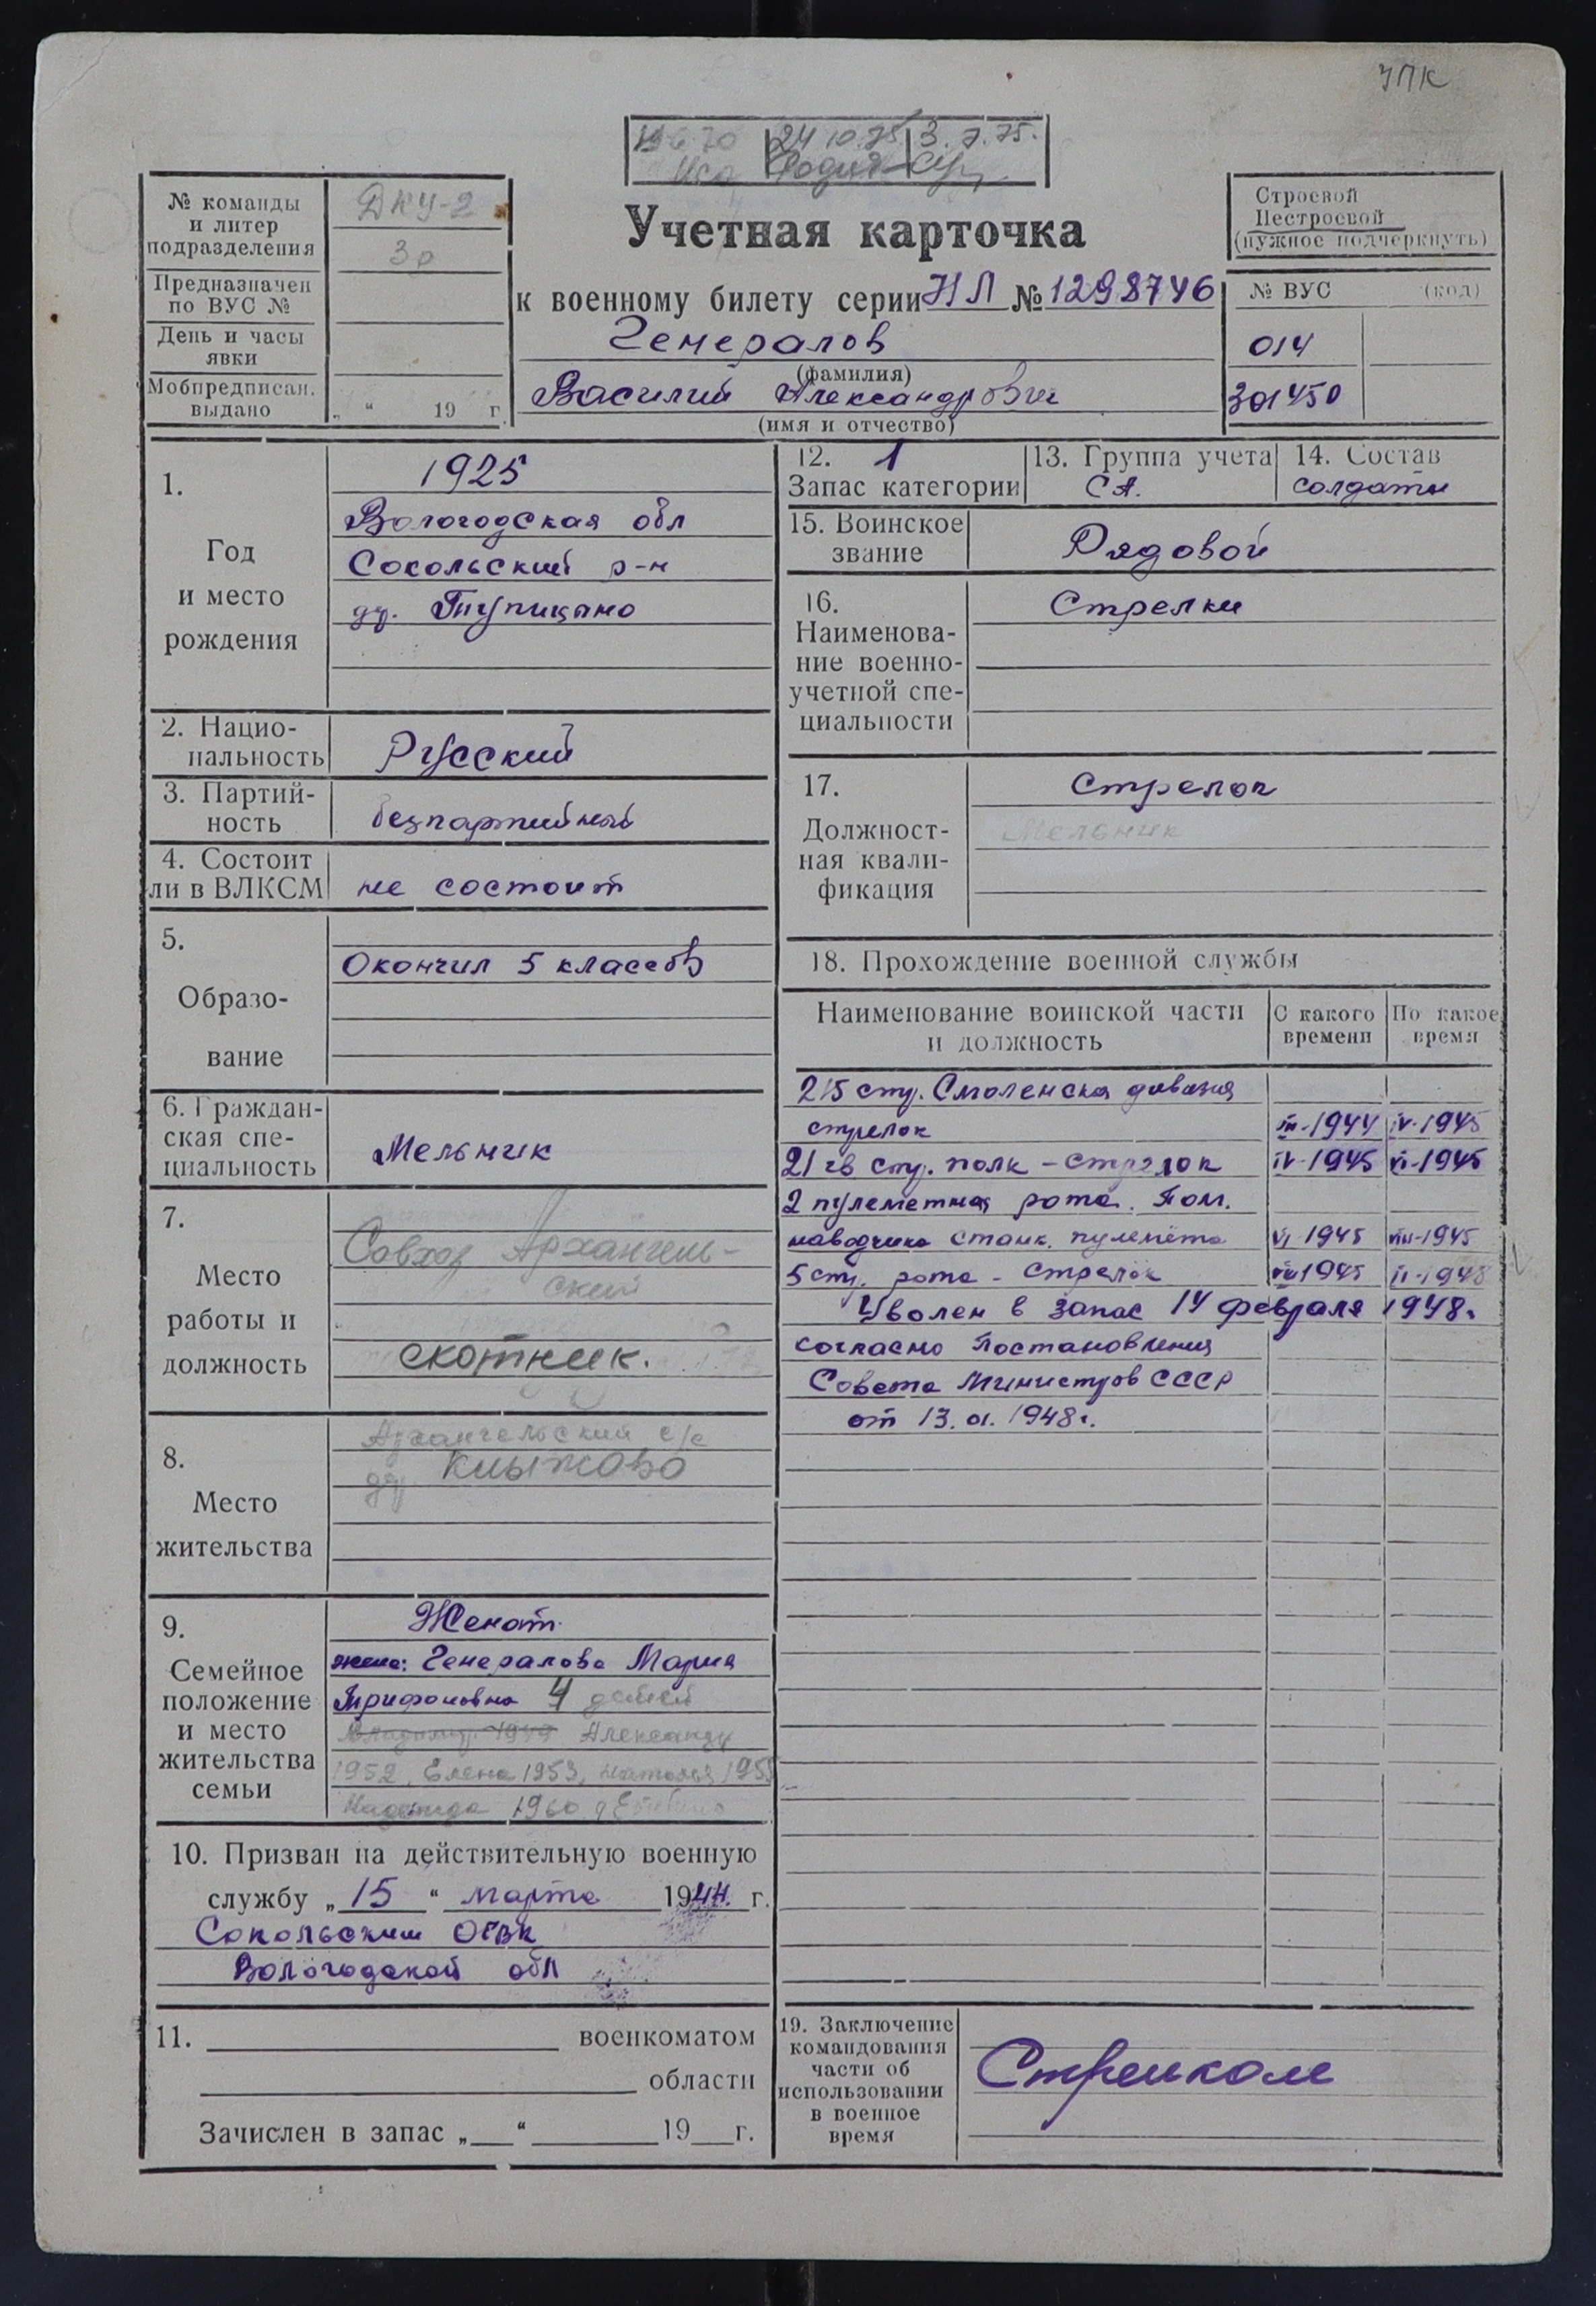 УПК
24 10.75 3.7.75.
№ команды
и литер
подразделения
ДКУ-2
3р
Предназначен
по ВУС №
День и часы
явки
Мобпредписан.
выдано
„ “ 19 г.
Учетная карточка
к военному билету серии НЛ № 1298746
Генералов
(фамилия)
Василий Александрович
(имя и отчество)
Строевой
Нестроевой
(нужное подчеркнуть)
№ ВУС (код)
014
301450
1.
Год
и место
рождения
1925
Вологодская обл
Сокольский р-н
др. Тупицыно
2. Нацио-
нальность
Русский
3. Партий-
ность
безпартийный
4. Состоит
ли в ВЛКСМ
не состоит
5.
Образо-
вание
Окончил 5 классов
6. Граждан-
ская спе-
циальность
Мельник
7.
Место
работы и
должность
Совхоз Архангель-
ский
скотник.
8.
Место
жительства
Архангельский с/с
др Клыжово
9.
Семейное
положение
и место
жительства
семьи
Женат
жена: Генералова Мария
Трифоновна 4 детей
Владимир 1949 Александр
1952, Елена 1953, Наталья 1955
Надежда 1960
10. Призван на действительную военную
службу „15“ марта 1944 г.
Сокольским ОГВК
Вологодской обл
11. военкоматом
области
Зачислен в запас „ “ 19 г.
12. 1
Запас категории
13. Группа учета
СА.
14. Состав
солдаты
15. Воинское
звание
Рядовой
16.
Наименова-
ние военно-
учетной спе-
циальности
Стрелки
17.
Должност-
ная квали-
фикация
Стрелок
Мельник
18. Прохождение военной службы
Наименование воинской части
и должность
С какого
времени
По какое
время
215 стр. Смоленска дивизия
стрелок III-1944 IV-1945
21 гв стр. полк - стрелок IV-1945 VI-1945
2 пулеметная рота. Пом.
наводчика станк. пулемёта VI 1945 VIII-1945
5 стр. рота - стрелок VIII 1945 II-1948
Уволен в запас 14 февраля 1948г.
согласно Постановления
Совета Министров СССР
от 13.01.1948г.
19. Заключение
командования
части об
использовании
в военное
время
Стрелком